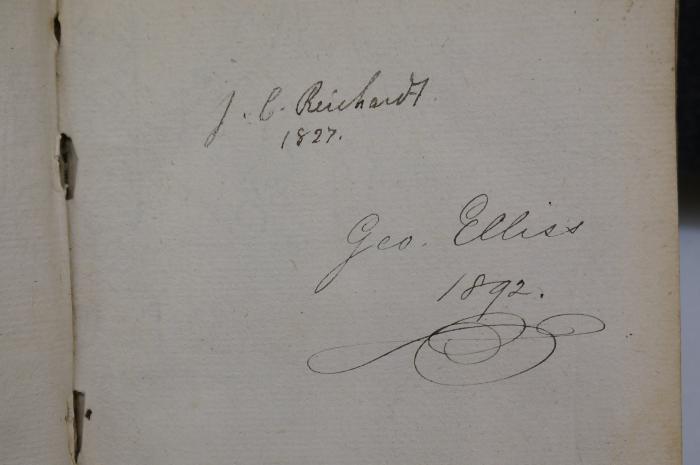 J. C. Reichardt.
1827.
Geo. Elliss
1892.